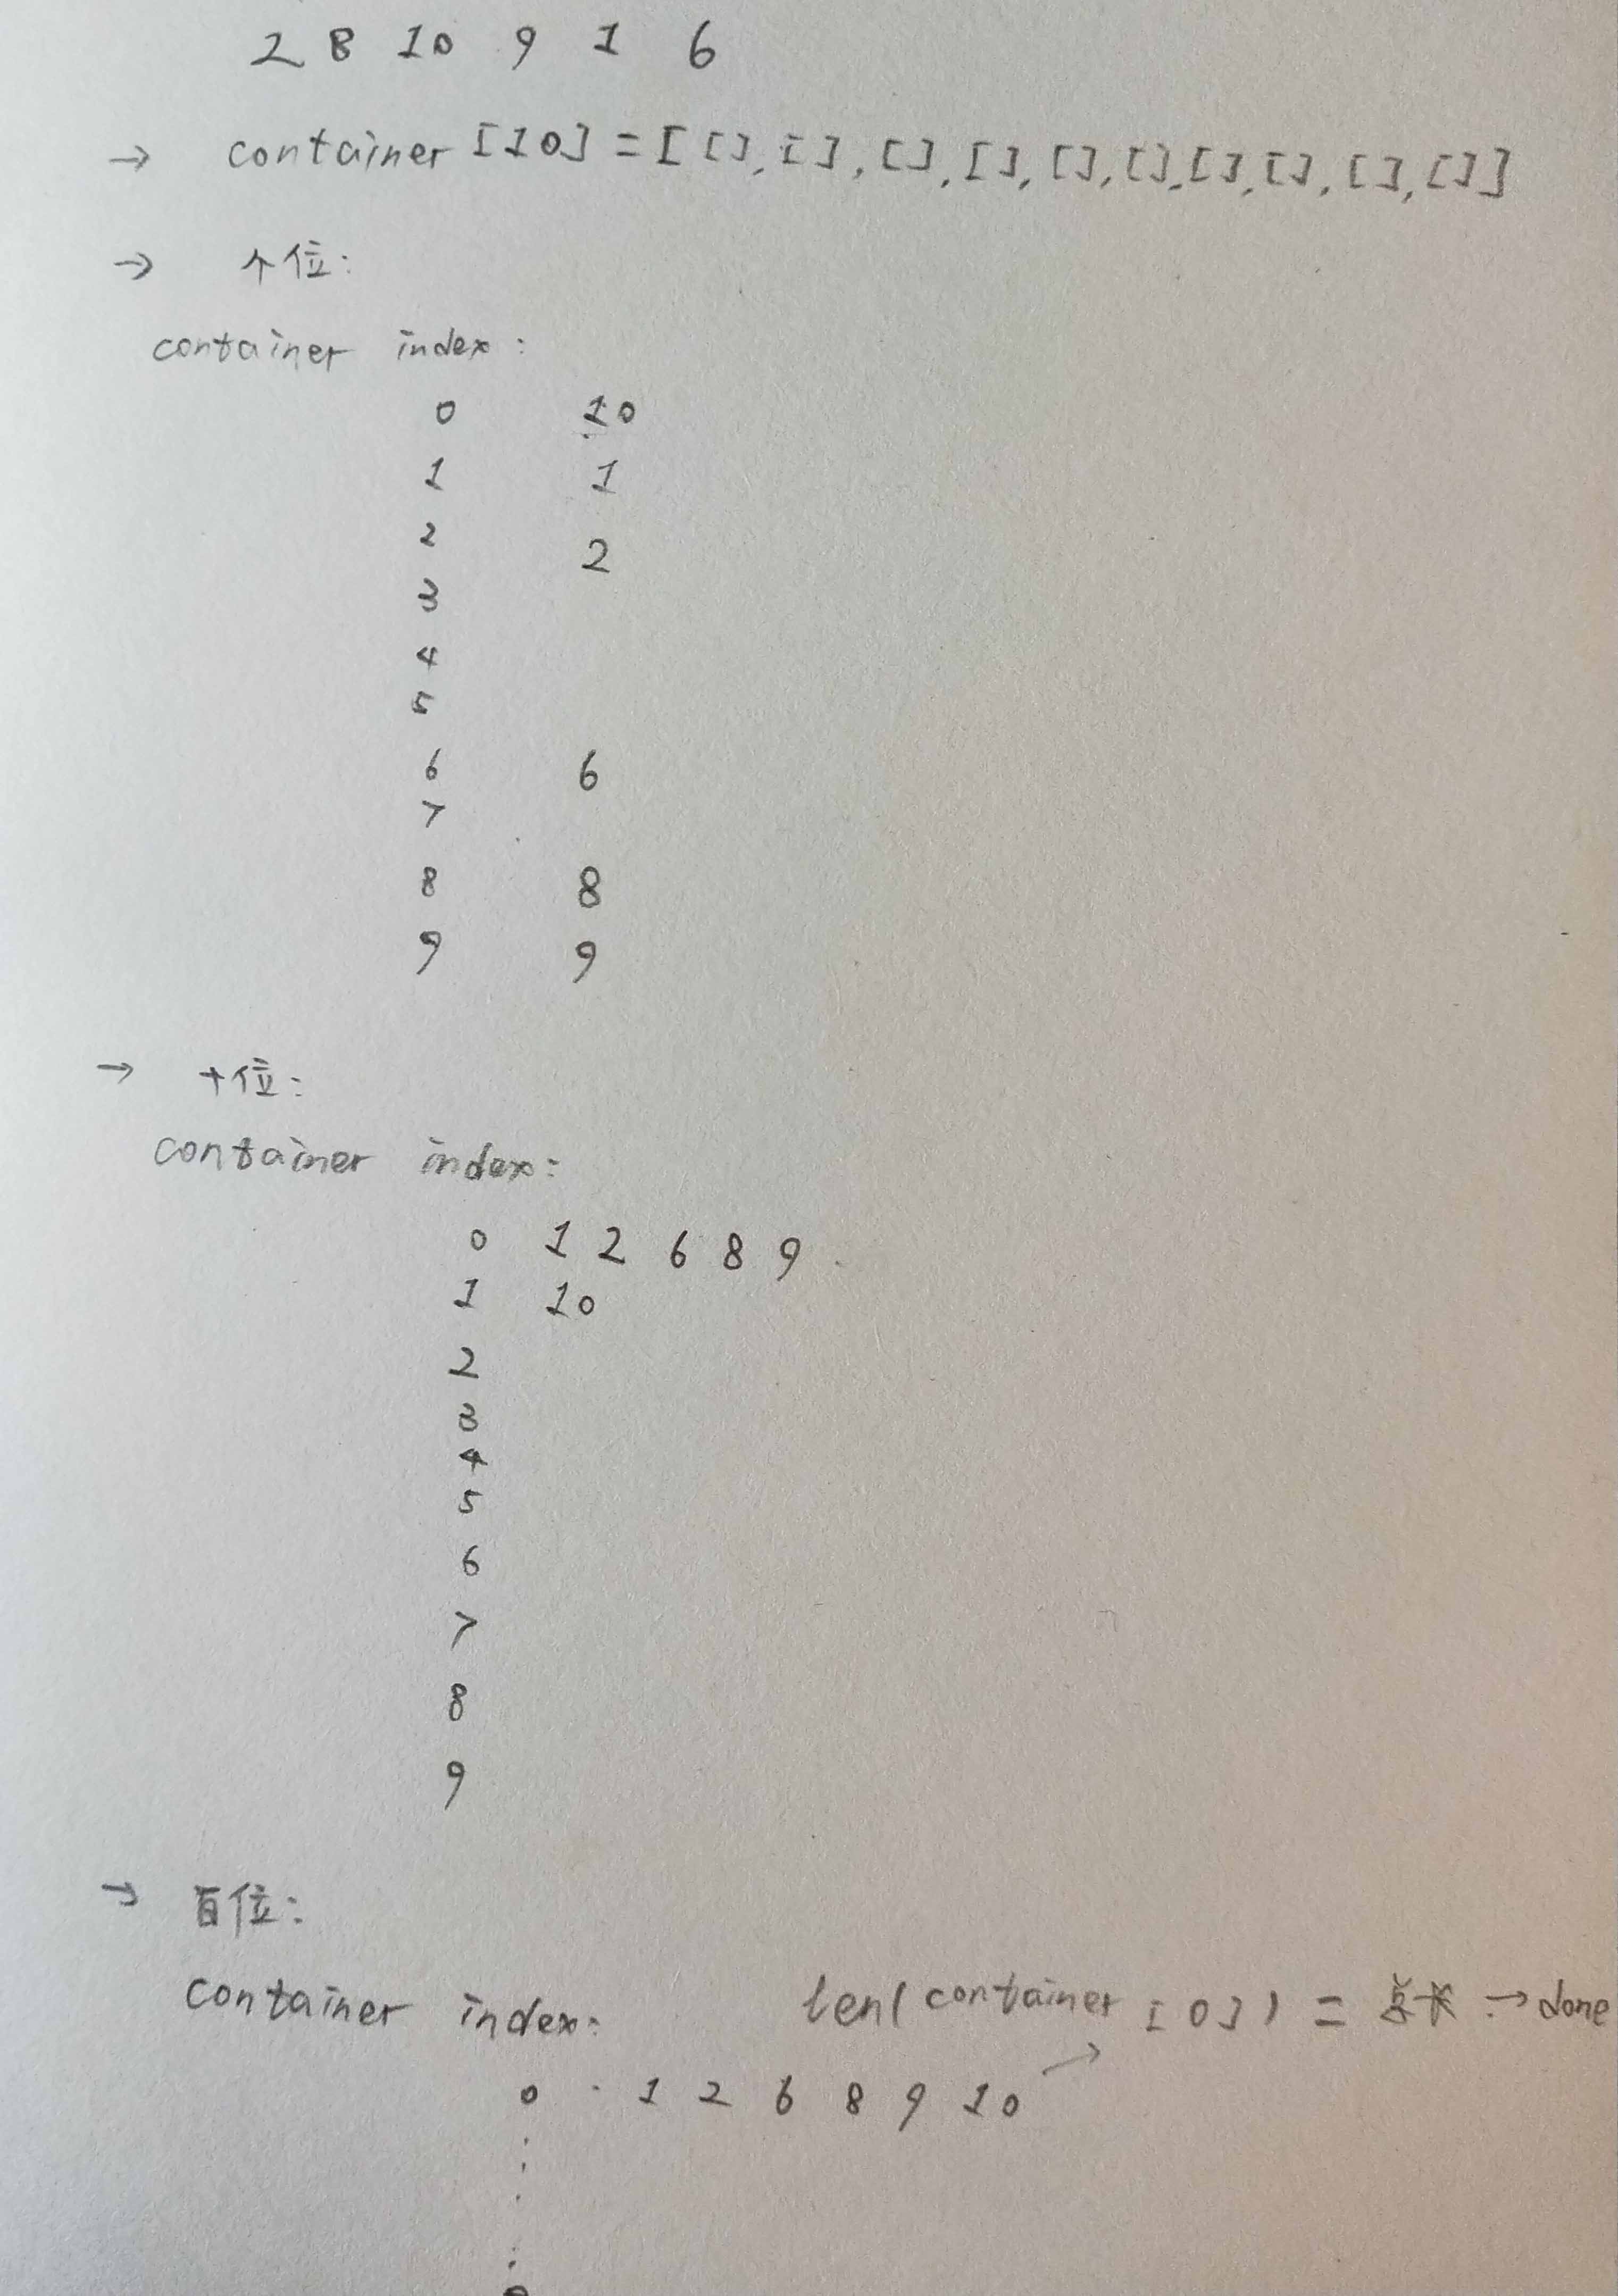 2 8 10 9 1 6
→ container [10] = [ [], [], [], [], [], [], [], [], [], [] ]
→ 个位:
container index:
0 10
1 1
2 2
3
4
5
6 6
7
8 8
9 9
→ 十位:
container index:
0 1 2 6 8 9
1 10
2
3
4
5
6
7
8
9
→ 百位:
container index: len(container [0]) = 总长 → done
0 1 2 6 8 9 10 →